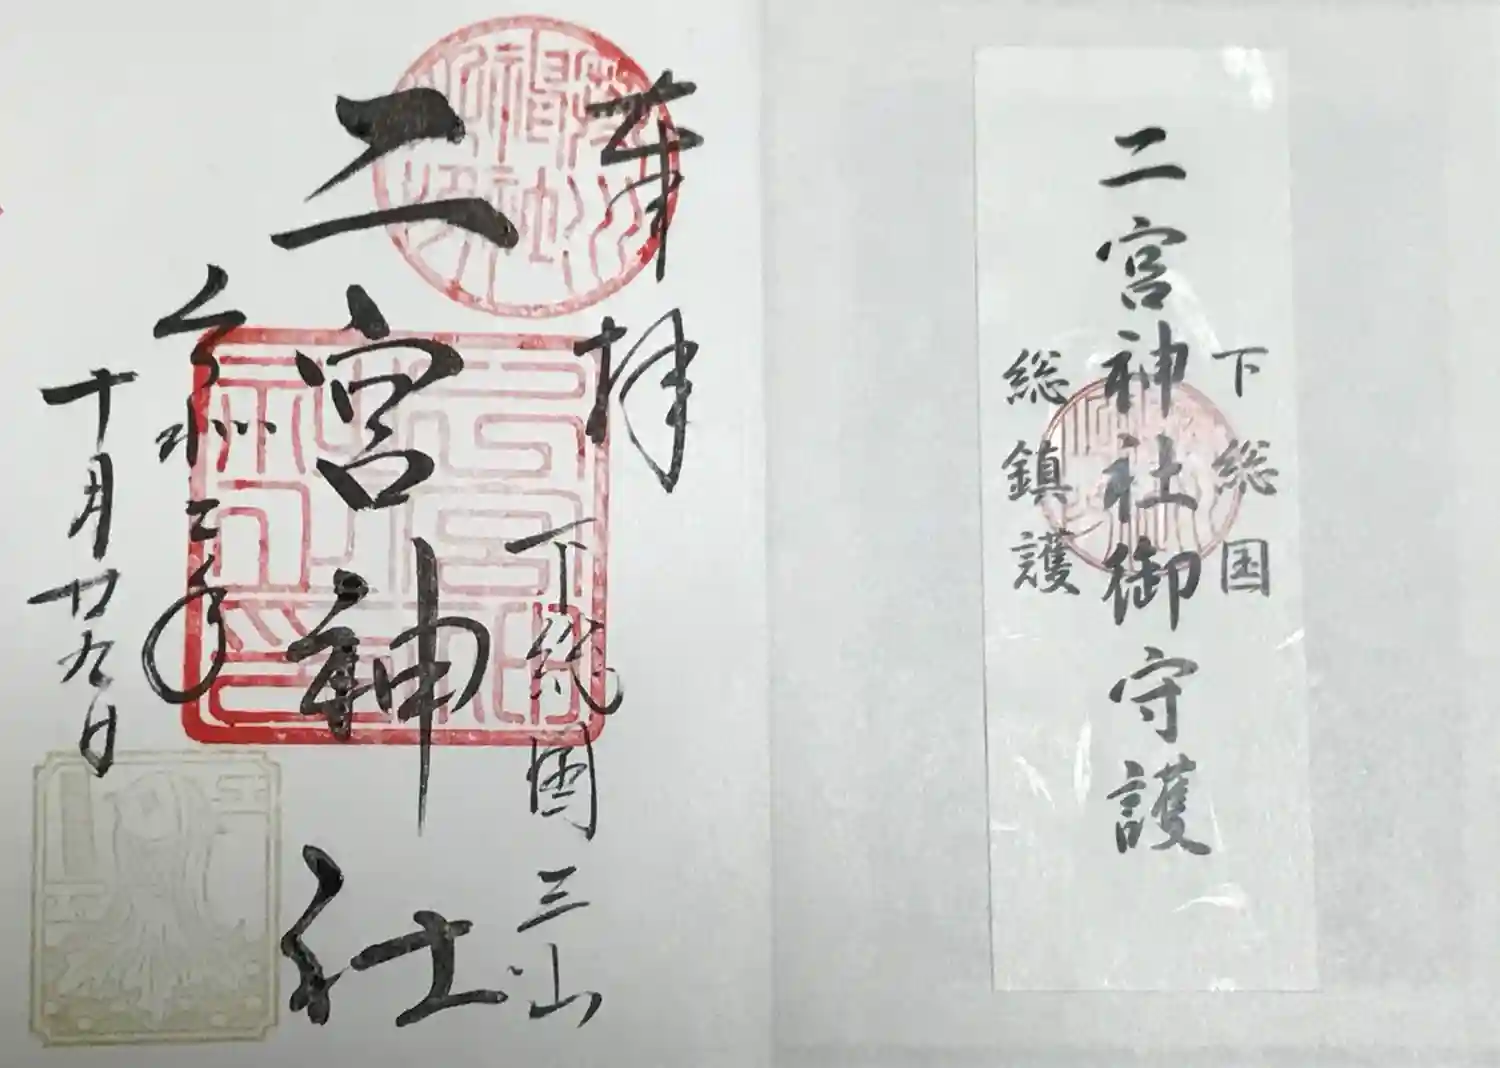 奉拝
下総国三山
二宮神社
令和三年
十月廿九日
下総国
二宮神社御守護
総鎮護